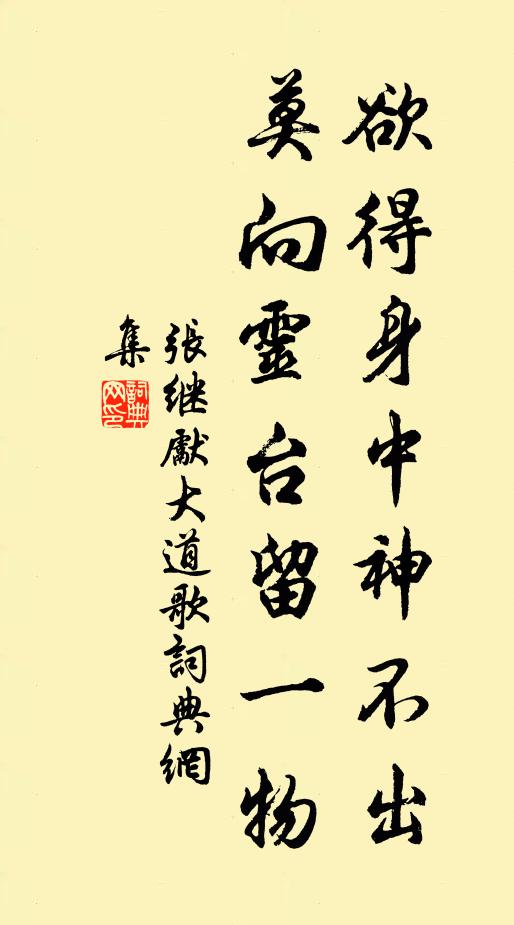 欲得身中神不出
莫向靈台留一物
張继獻大道歌詞典網
集
詞典
网印